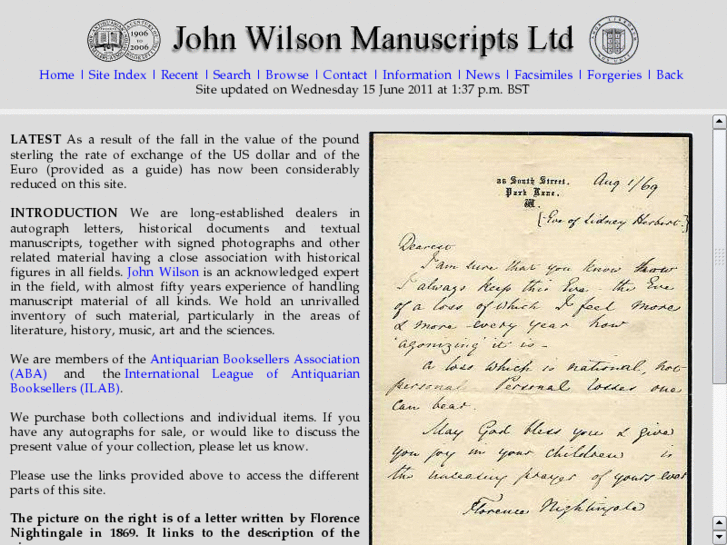 1906
2006
John Wilson Manuscripts Ltd
Home | Site Index | Recent | Search | Browse | Contact | Information | News | Facsimiles | Forgeries | Back
Site updated on Wednesday 15 June 2011 at 1:37 p.m. BST
LATEST As a result of the fall in the value of the pound
sterling the rate of exchange of the US dollar and of the
Euro (provided as a guide) has now been considerably
reduced on this site.
INTRODUCTION We are long-established dealers in
autograph letters, historical documents and textual
manuscripts, together with signed photographs and other
related material having a close association with historical
figures in all fields. John Wilson is an acknowledged expert
in the field, with almost fifty years experience of handling
manuscript material of all kinds. We hold an unrivalled
inventory of such material, particularly in the areas of
literature, history, music, art and the sciences.
We are members of the Antiquarian Booksellers Association
(ABA) and the International League of Antiquarian
Booksellers (ILAB).
We purchase both collections and individual items. If you
have any autographs for sale, or would like to discuss the
present value of your collection, please let us know.
Please use the links provided above to access the different
parts of this site.
The picture on the right is of a letter written by Florence
Nightingale in 1869. It links to the description of the
Aug 1/69
South Street,
Park Lane,
W.
[Eve of Sidney Herbert]
Dearest
I am sure that you know how
I always keep this Eve the Eve
of a loss of which I feel more
& more every year how
'agonizing' it is -
a loss which is national, not
personal. Personal losses one
can bear.
May God bless you & give
you joy in your children is
the unceasing prayer of yours ever
Florence Nightingale